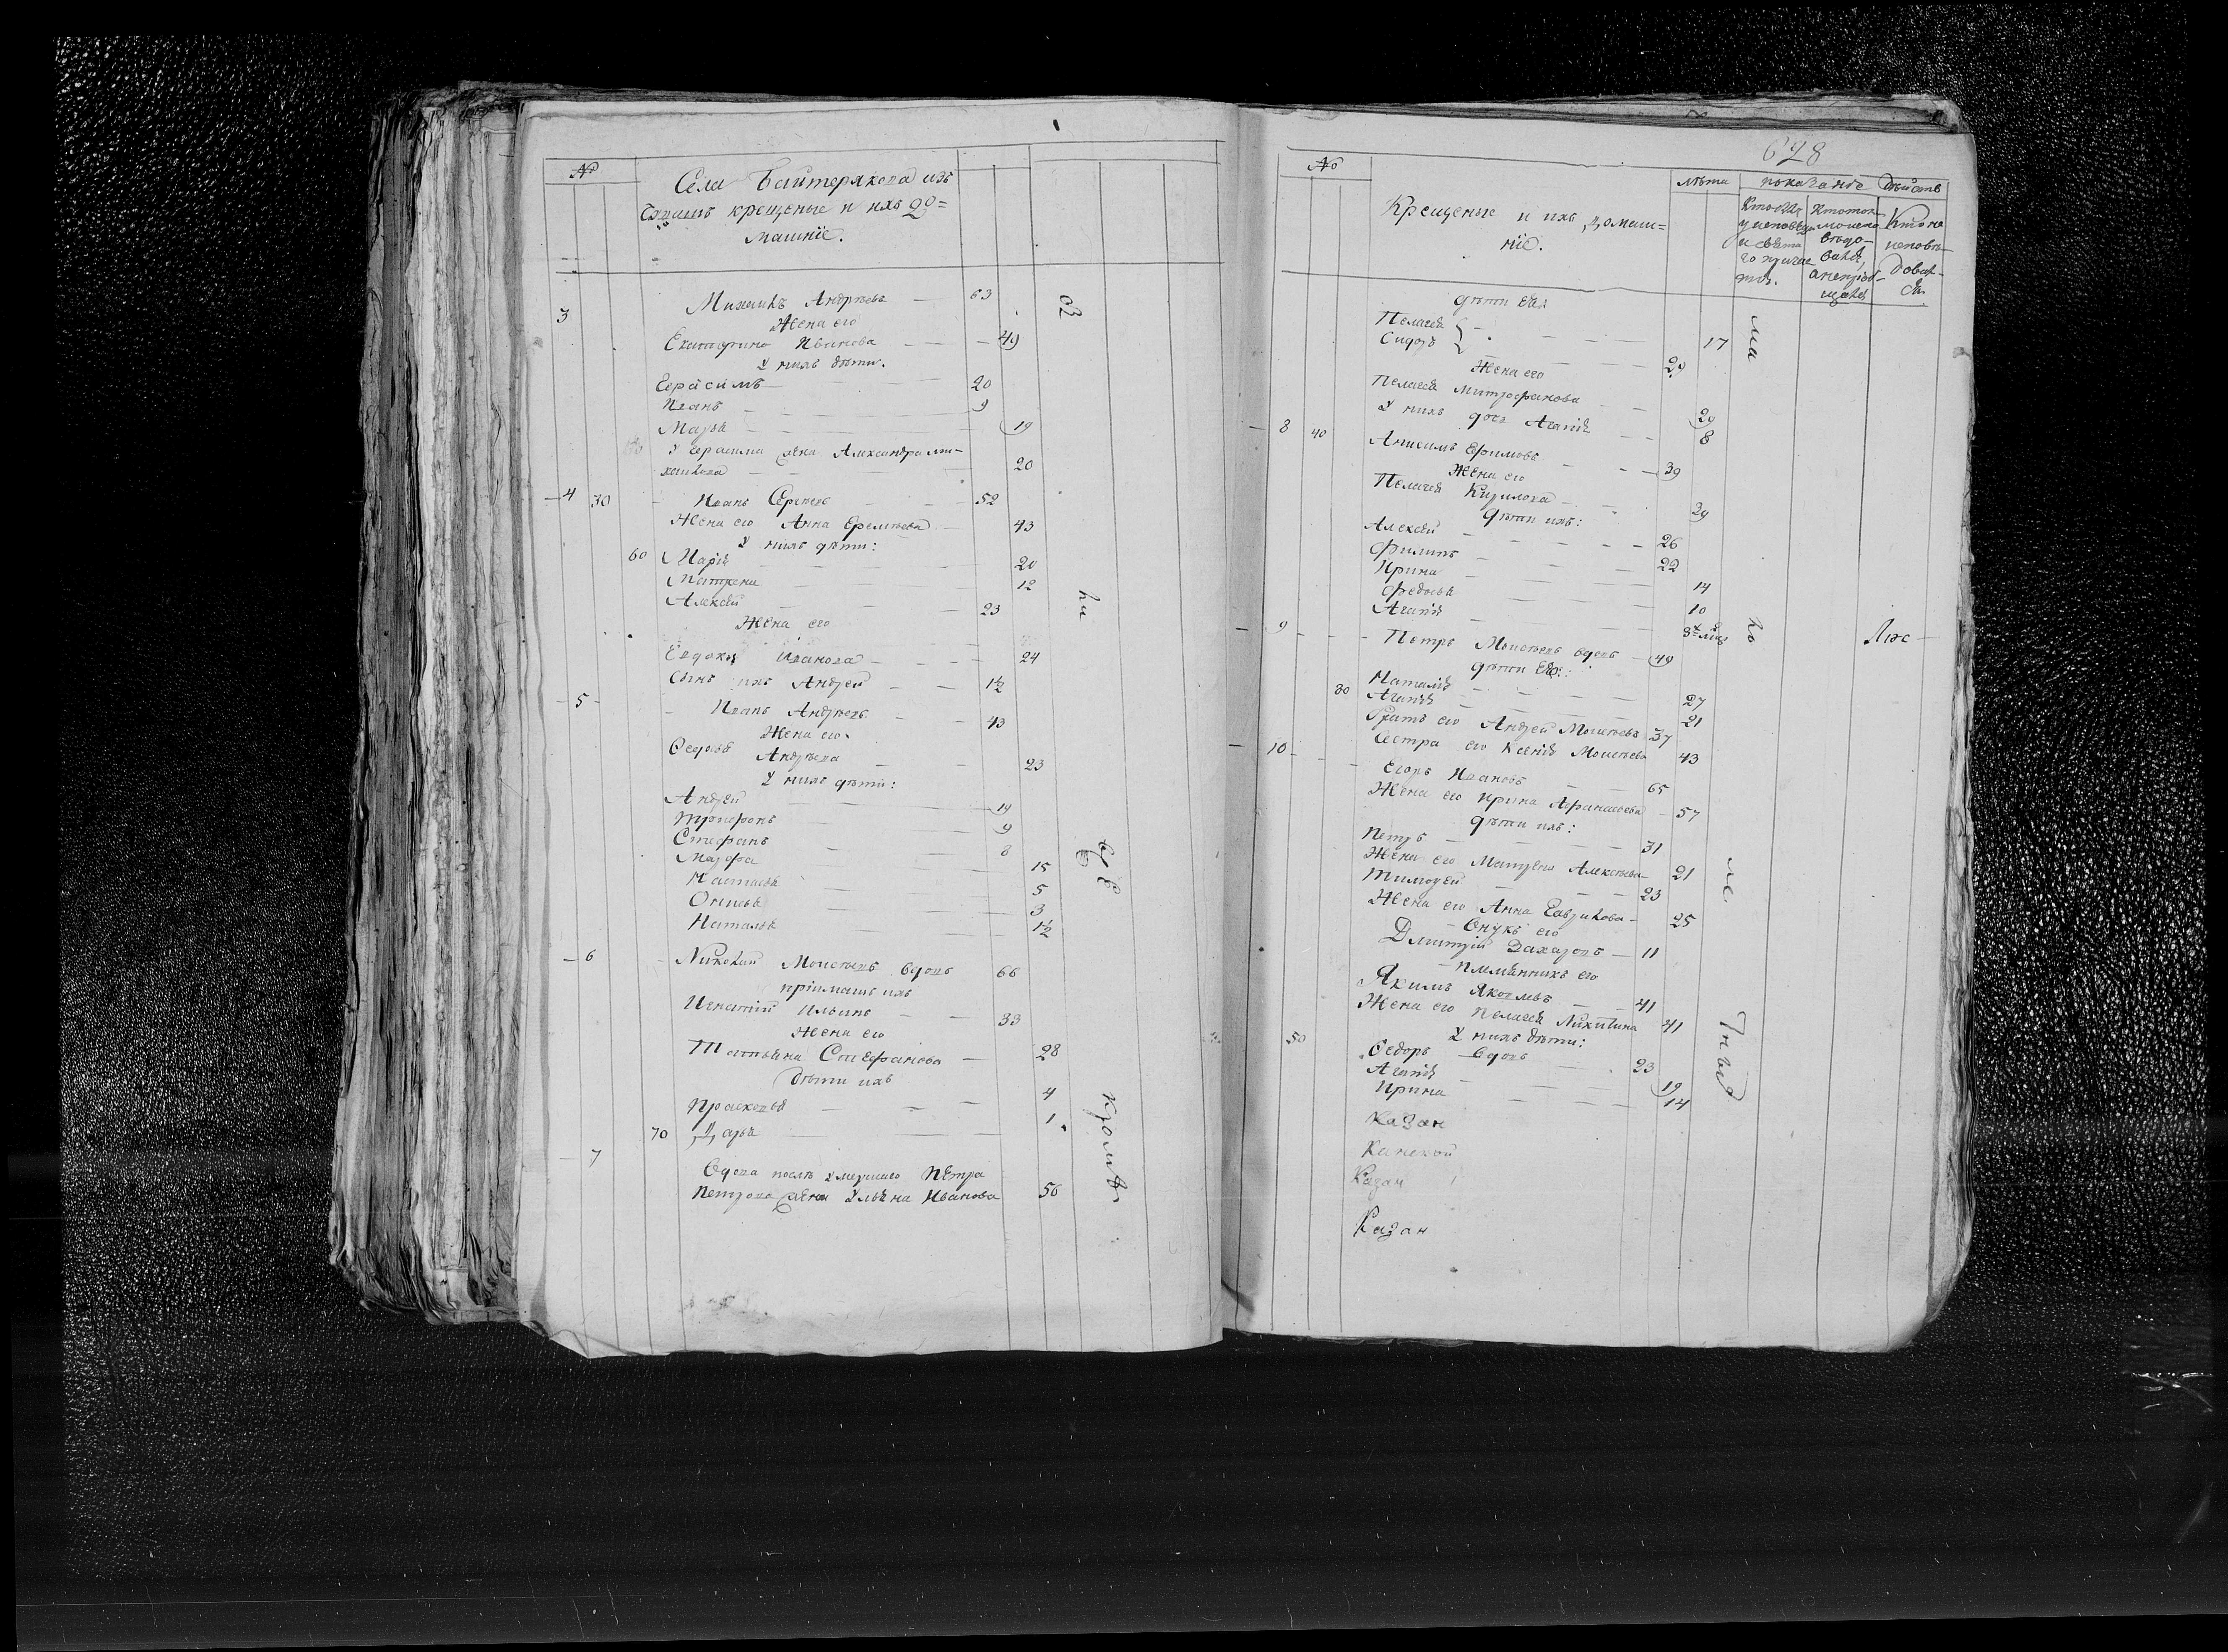 №
Села Байтерякова изъ
крещеные и ихъ до=
машніе.
3 Михаилъ Андрѣевъ — 63
Жена его
Екатерина Иванова — 49
У нихъ дѣти.
Герасимъ — 20
Иванъ — 9
Марья — 19
У Герасима жена Александра Ми-
хаилова — 20
4 30 Иванъ Сергѣевъ — 52
Жена его Анна Еремѣева — 43
У нихъ дѣти:
60 Марія — 20
Матрена — 12
Алексѣй — 23
Жена его
Евдокія Иванова — 24
Сынъ ихъ Андрей — 1½
5 Иванъ Андрѣевъ — 43
Жена его.
Ѳедосья Андрѣева — 23
У нихъ дѣти:
Андрей — 19
Трифонъ — 9
Стефанъ — 8
Марфа — 15
Настасья — 5
Онисья — 3
Наталья — 1½
6 Николай Моисѣевъ вдовъ 66
пріимышъ ихъ
Игнатій Ильинъ — 33
Жена его
Татьяна Стефанова — 28
Дѣти ихъ
Прасковья — 4
70 Дарья — 1
7 Вдова послѣ умершаго Петра
Петрова жена Ульяна Иванова 56
вдѣ
кромѣ
628
№
Крещеные и ихъ домаш=
ніе.
лѣта
показаніе дѣйств
Кто былъ
у исповѣди
и свята
го причас
тія.
Кто ток
мо испо
вѣдо-
вался,
а непріоб-
щался
Кто не
исповѣ-
довал-
ся
дѣти ея:
Пелагея — 17
Сидоръ — 29
Жена его
Пелагея Митрофанова — 29
У нихъ дочь Агапія — 8
8 40 Анисимъ Ефимовъ — 39
Жена его
Пелагея Кирилова — 39
Дѣти ихъ:
Алексѣй — 26
Филипъ — 22
Ирина — 14
Федосья — 10
Агапія —
9 Петръ Моисѣевъ вдовъ — 49
дѣти его:
Наталія — 27
80 Агапія — 21
Братъ его Андрей Моисѣевъ 37
Сестра его Ксенія Моисѣева 43
10 Егоръ Ивановъ — 65
Жена его Ирина Афанасьева — 57
дѣти ихъ:
Петръ — 31
Жена его Матрена Алексѣева — 21
Тимоѳей — 23
Жена его Анна Гаврилова — 25
Внукъ его
Дмитрій Захаровъ — 11
Племянникъ его
Якимъ Яковлевъ — 41
Жена его Пелагея Никитина 41
У нихъ дѣти:
50 Ѳедоръ вдовъ — 23
Агапія — 19
Ирина — 14
Казан
Казан
Казан
ма
ло
лѣ